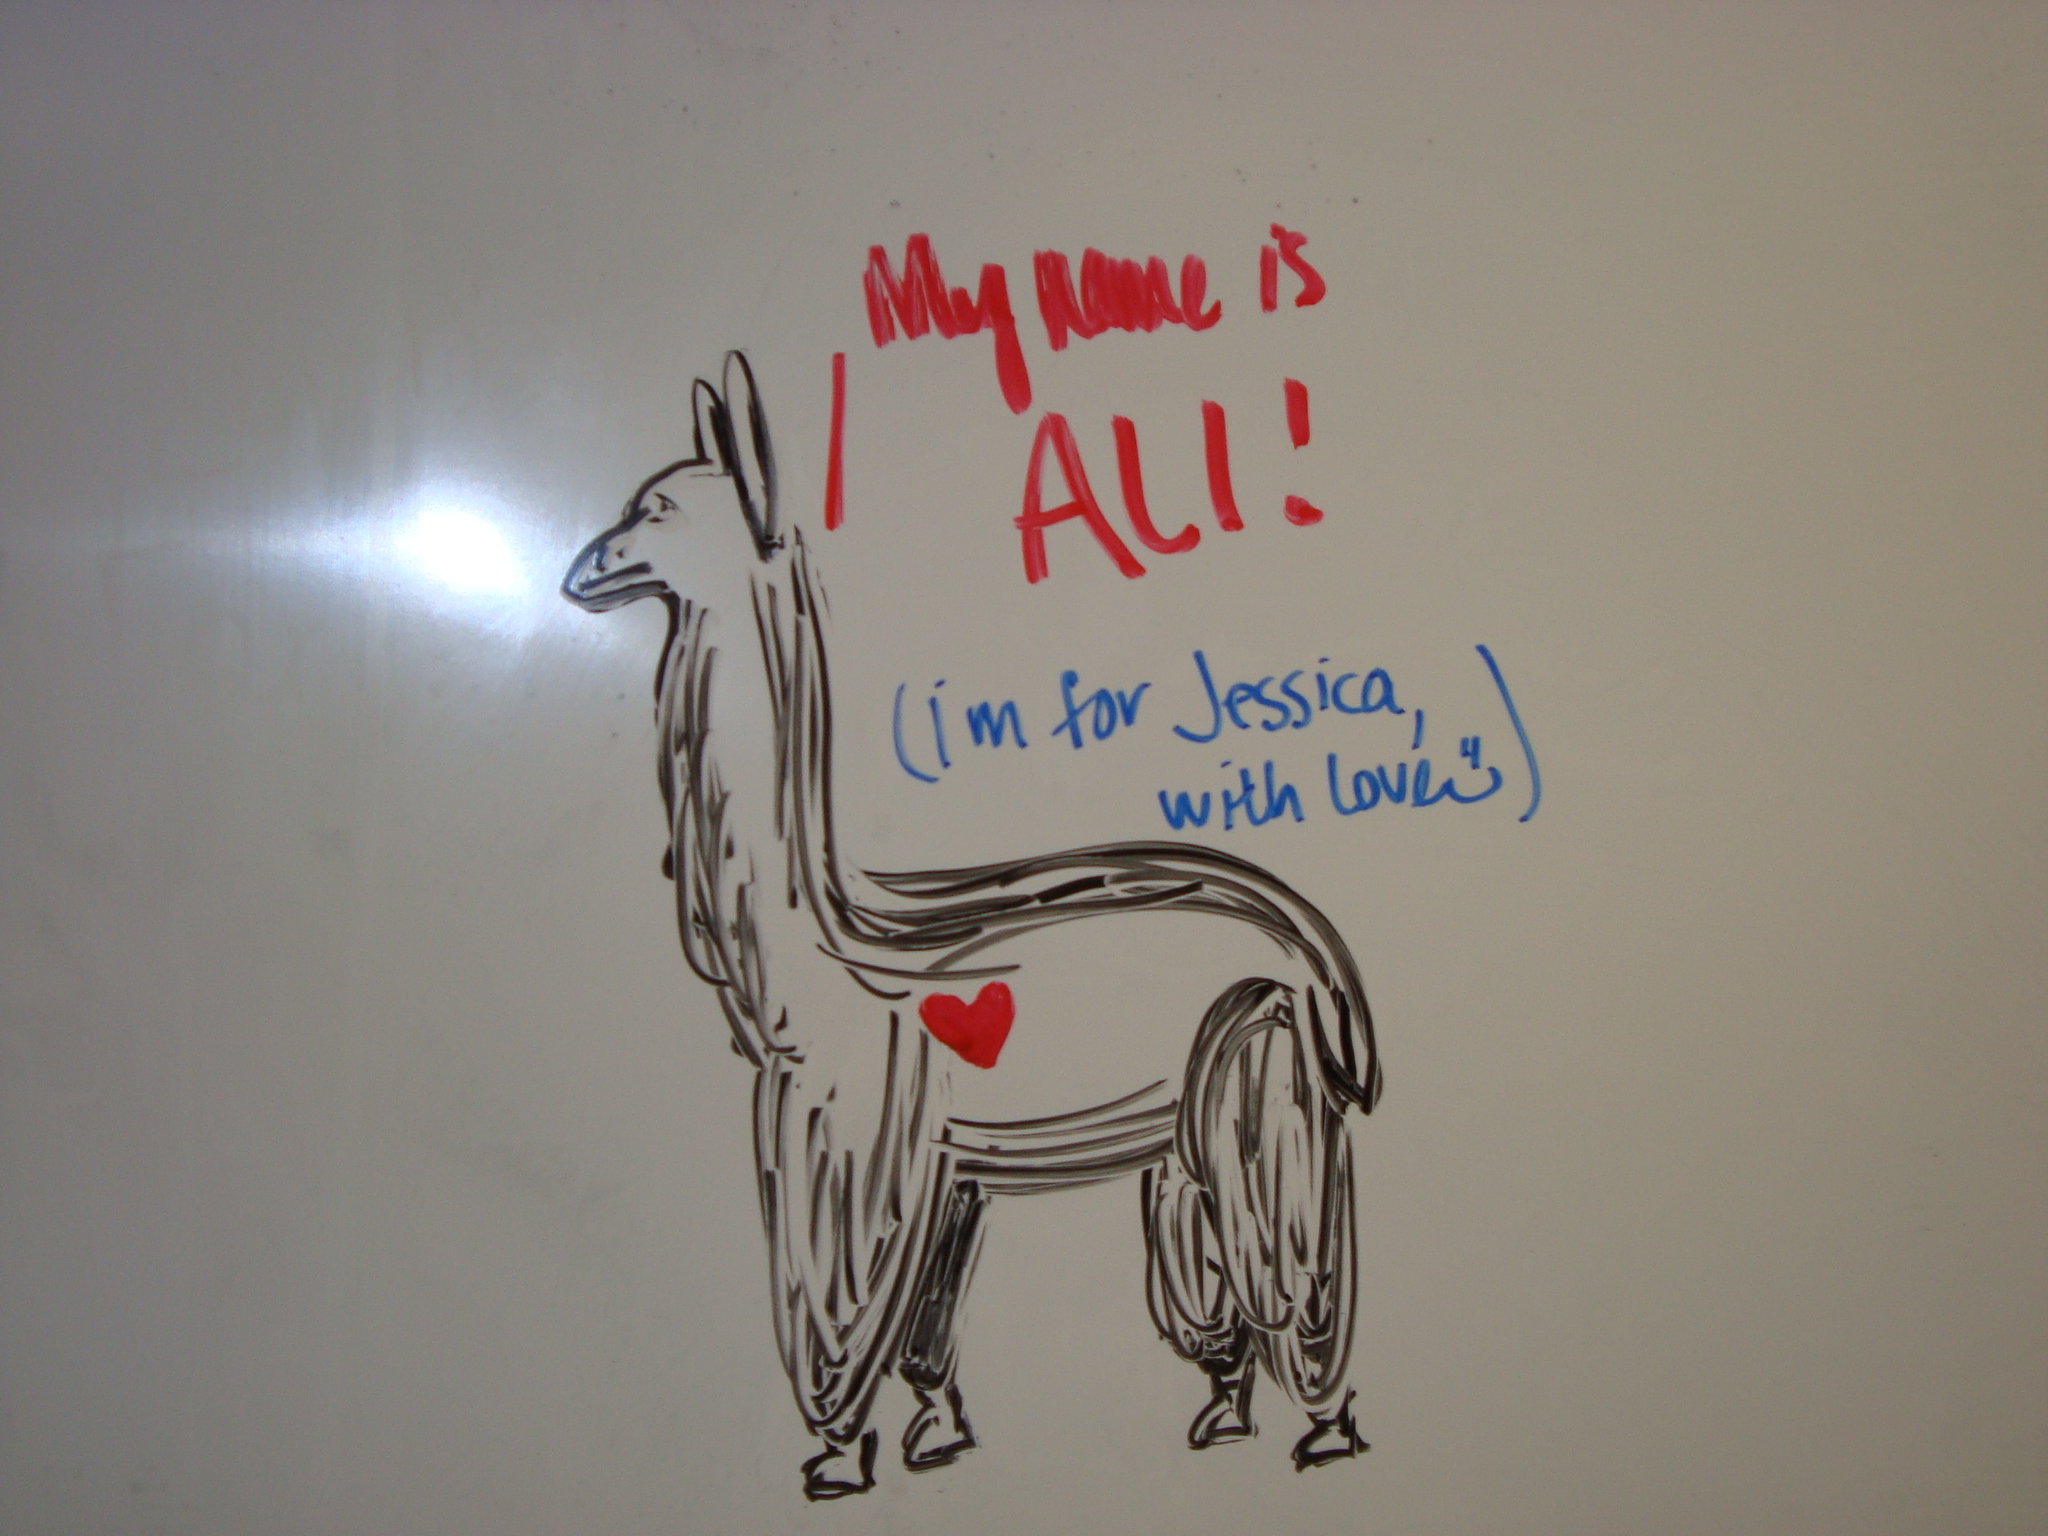 My name is
ALI!
(i'm for Jessica,
with love)